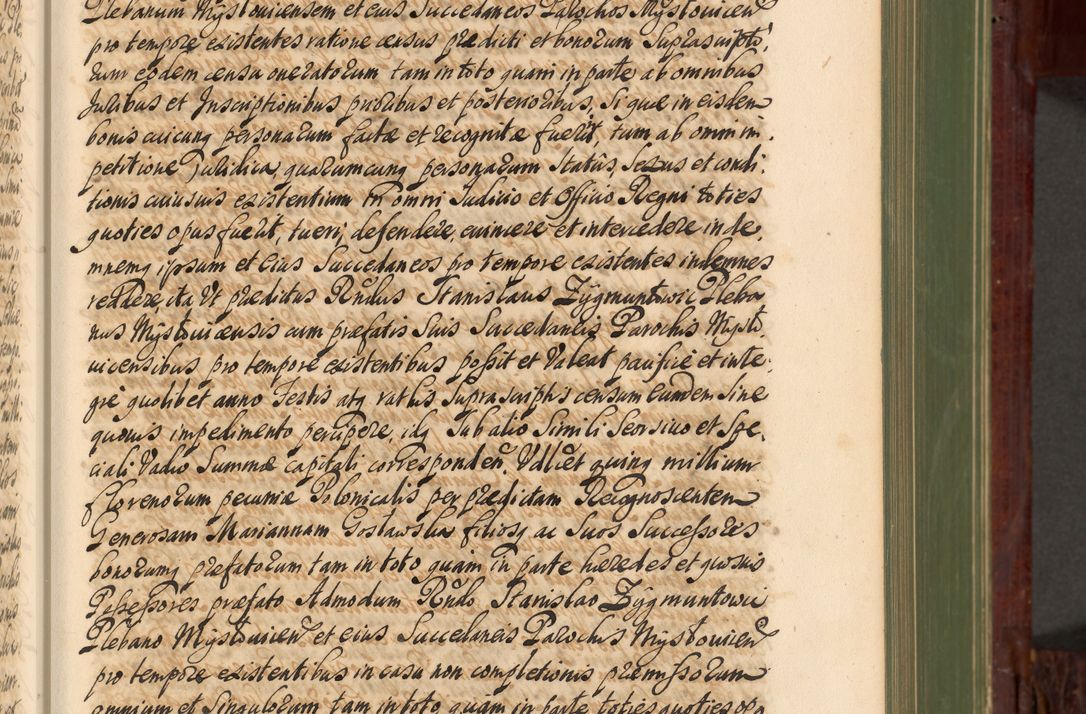 Plebanum Mystouicensem et eius Succedaneos Parochos Mystouicen
pro tempore existentes ratione census prædicti et bonorum suprascripto,
rum eodem censu oneratorum tam in toto quam in parte ab omnibus
Juribus et Inscriptionibus prioribus et posterioribus, si quæ in eisdem
bonis cuicunq personarum factæ et recognitæ fuerit, tum ab omni im,
petitione Juridica, quarumcunq personarum Status, Sexus et condi,
tionis cuiusuis existentium in omni Judicio et Officio Regni toties
quoties opus fuerit, tueri, defendere, euincere et intercedere inde,
mnemq ipsum et eius Succedaneos pro tempore existentes indemnes
reddere, ita Vt prædictus Rndus Stanislaus Zÿgmuntowic Pleba
nus Mystouicensis cum præfatis suis Succedaneis Parochis Mysto,
uicensibus pro tempore existentibus possit et Valeat pacificè et inte,
grè quolibet anno Festis atq ratis suprascriptis censum eundem sine
quouis impedimento percipere, idq Sub alio Simili Seorsiuo et Spe,
ciali Vadio Summæ capitali corresponden. Vdlicet quinq millium
Florenorum pecuniæ Polonicalis per prædictam Recognoscentem
Generosam Mariannam Goslawska filiosq ac Suos Successores
bonorumq præfatorum tam in toto quam in parte hæredes et quosuis
Possessores præfato Admodum Rndo Stanislao Zÿgmuntowic
Plebano Mystouicien et eius Succedaneis Parochis Mystouicien
pro tempore existentibus in casu non completionis præmissorum
omnium et Singulorum tam in toto quam in parte toties quoties opq